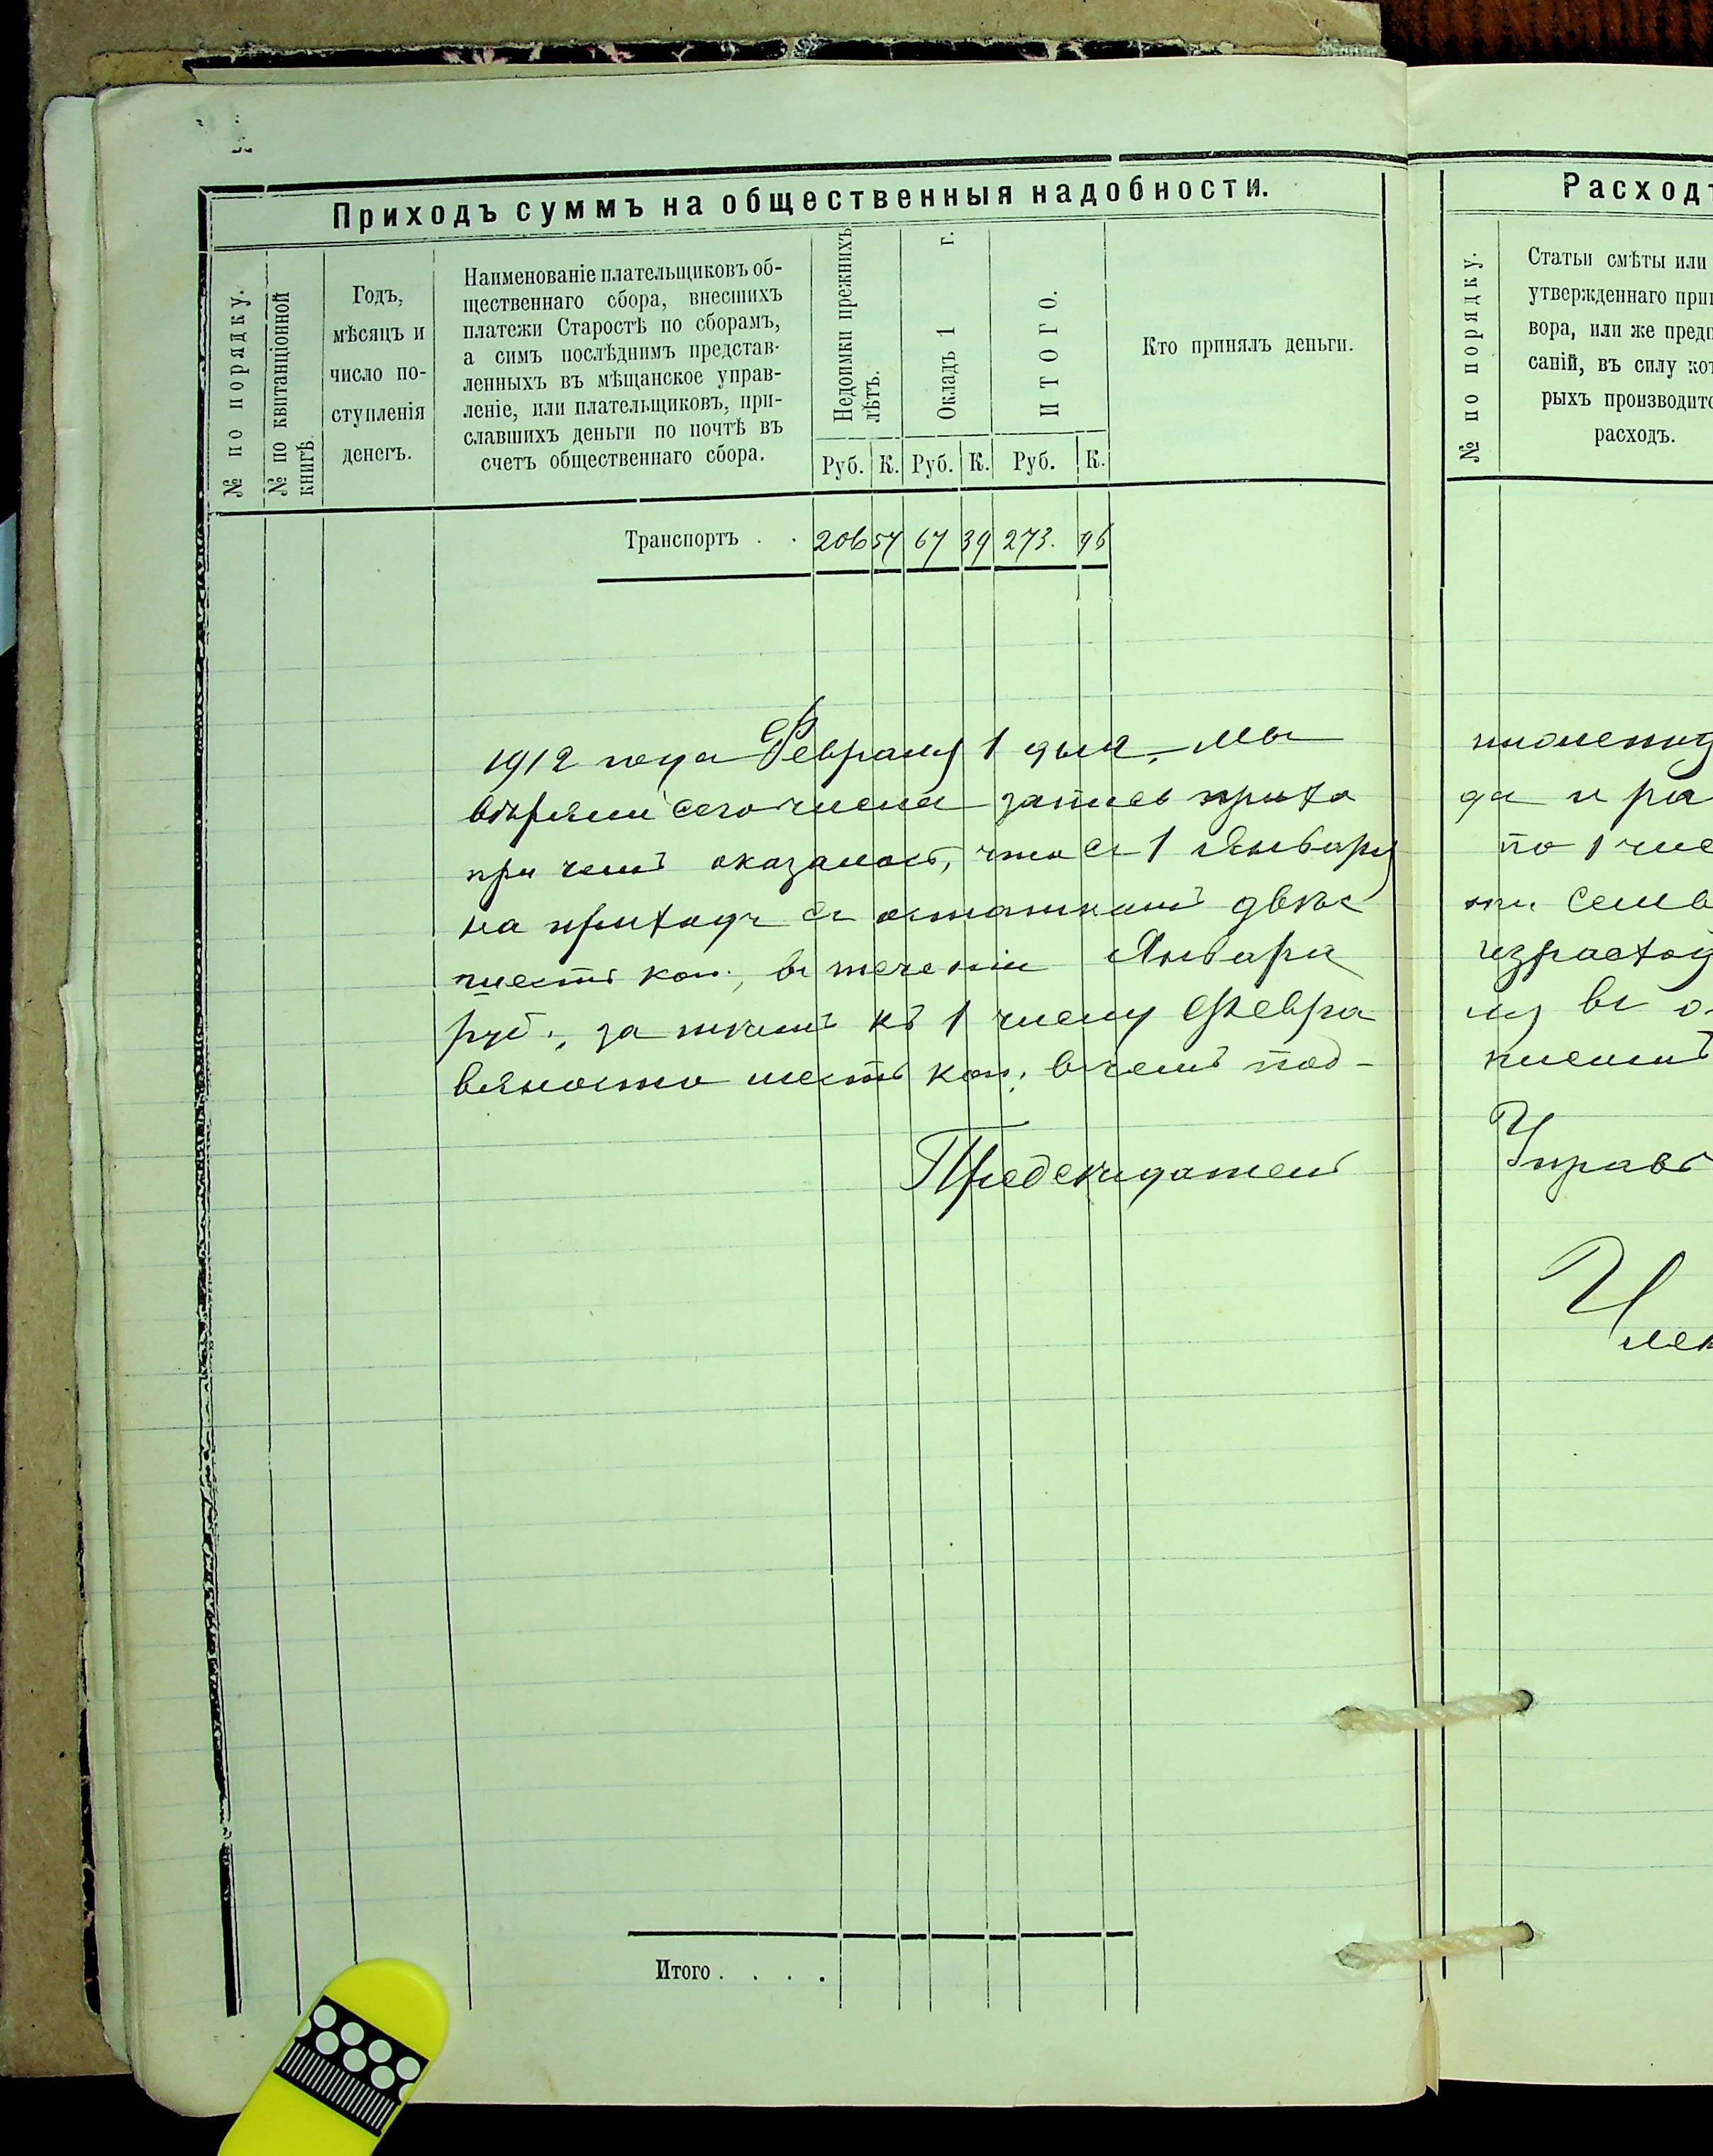 Приходъ суммъ на общественныя надобности.
№ по порядку.
№ по квитанціонной
книгѣ.
Годъ,
мѣсяцъ и
число по-
ступленія
денегъ.
Наименованіе плательщиковъ об-
щественнаго сбора, внесшихъ
платежи Старостѣ по сборамъ,
а симъ послѣднимъ представ-
ленныхъ въ мѣщанское управ-
леніе, или плательщиковъ, при-
славшихъ деньги по почтѣ въ
счетъ общественнаго сбора.
Недоимки прежнихъ
лѣтъ.
Окладъ 1 г.
ИТОГО.
Руб. К. Руб. К. Руб. К.
Кто принялъ деньги.
Транспортъ . . 206 57 67 39 273. 96
1912 года Февраля 1 дня, Мы
вѣряли сего числа запись прихо
при чемъ оказалось, что съ 1 Января
на приходъ съ остаткомъ двѣс
шесть коп., въ теченіи Января
руб., за тѣмъ къ 1 числу Февра
вяносто шесть коп., въ чемъ под-
Предсѣдатель
Итого . . . .
Расходъ
№ по порядку.
Статьи смѣты или
утвержденнаго при
вора, или же пред
саній, въ силу кот
рыхъ производитс
расходъ.
да и ра
по 1 чис
ти семь
израсход
ля въ о
писыемъ
Управ
Член